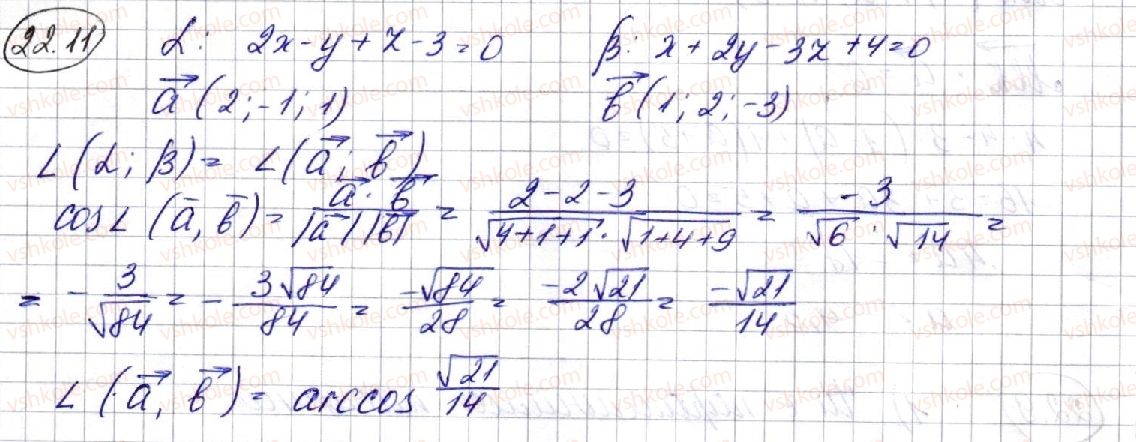 22.11 α: 2x-y+z-3=0 β: x+2y-3z+4=0
a⃗ (2;-1;1) b⃗ (1;2;-3)
∠(α;β)= ∠(a⃗; b⃗)
cos∠(a̅,b̅)= a⃗·b⃗/|a⃗||b⃗| = 2-2-3/√4+1+1·√1+4+9 = -3/√6·√14 =
= -3/√84 = -3√84/84 = -√84/28 = -2√21/28 = -√21/14
∠(a⃗, b⃗)= arccos √21/14
vshkole.com